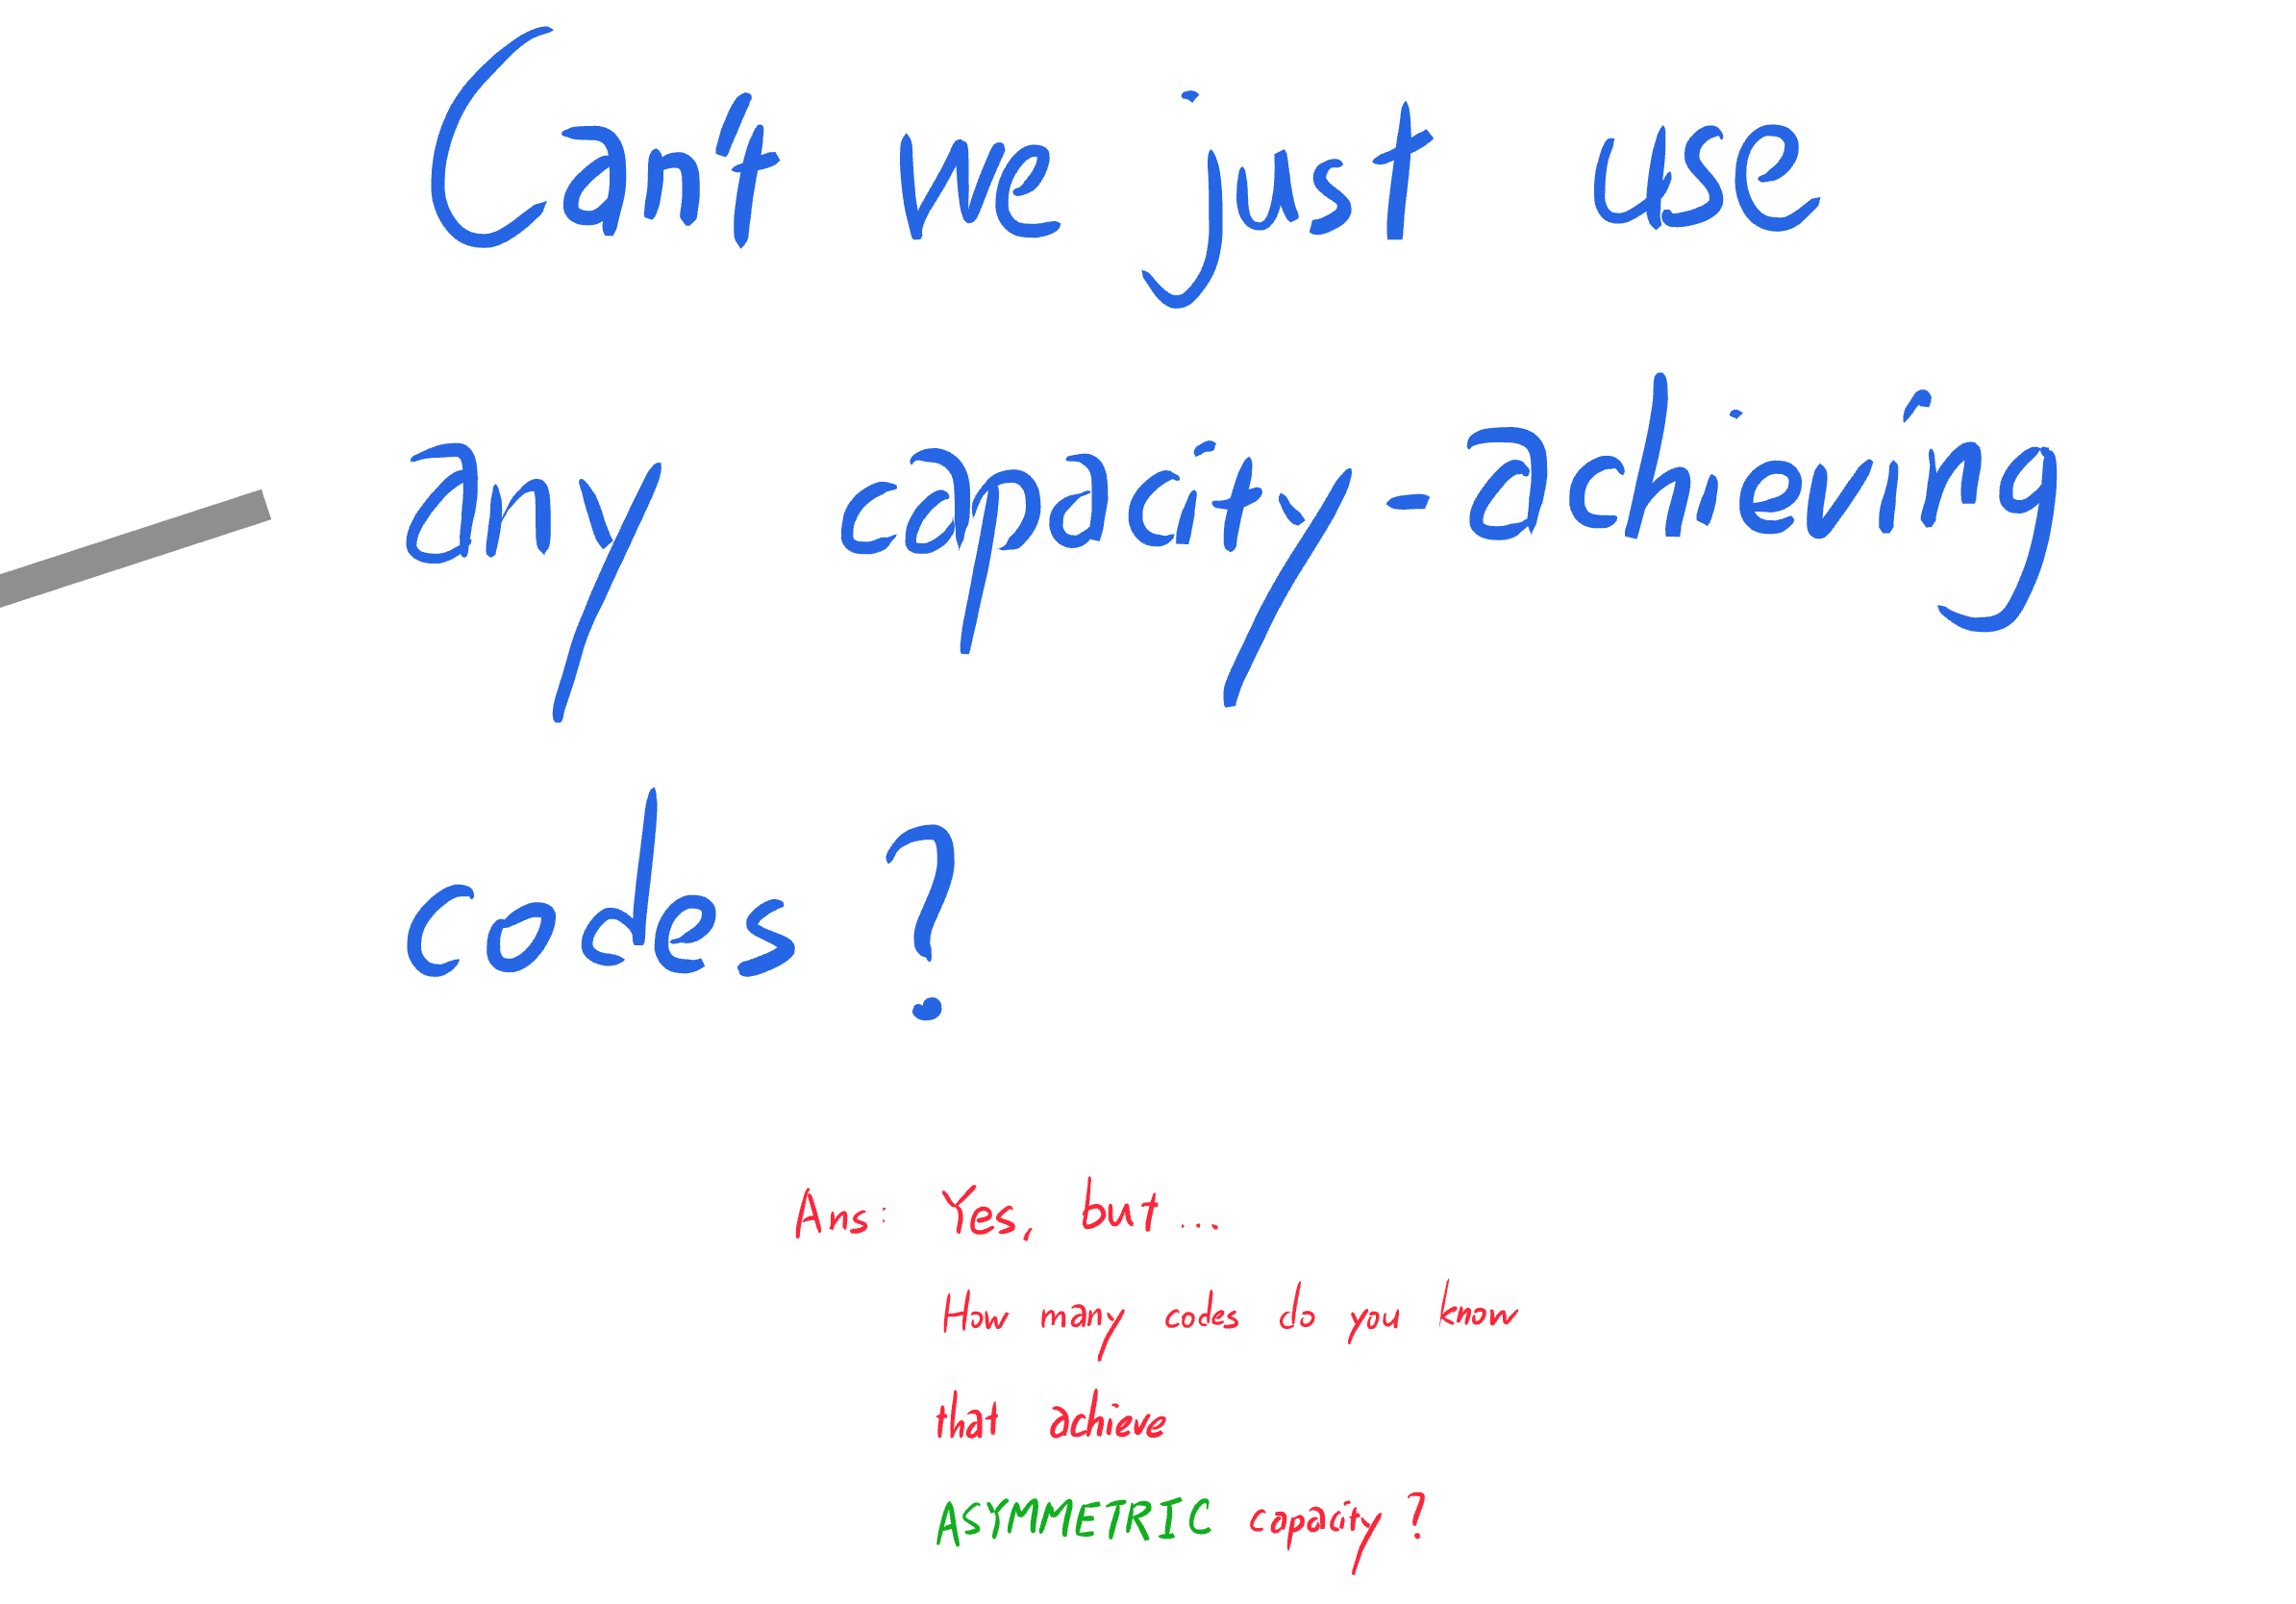 Can't we just use
any capacity-achieving
codes ?
Ans: Yes, but ...
How many codes do you know
that achieve
ASYMMETRIC capacity ?